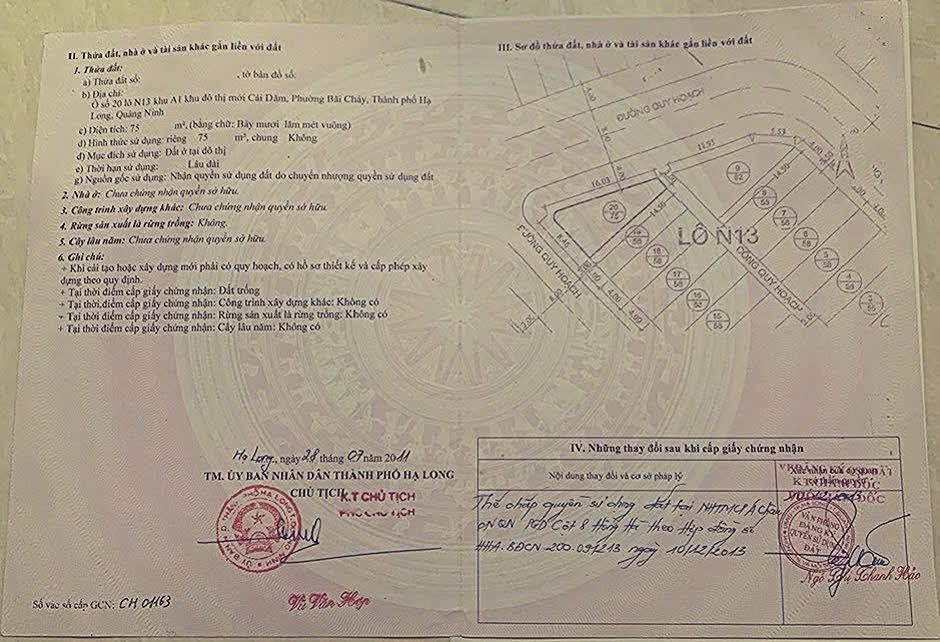 II. Thửa đất, nhà ở và tài sản khác gắn liền với đất
1. Thửa đất:
a) Thửa đất số: , tờ bản đồ số:
b) Địa chỉ:
Ô số 20 lô N13 khu A1 khu đô thị mới Cái Dăm, Phường Bãi Cháy, Thành phố Hạ
Long, Quảng Ninh
c) Diện tích: 75 m², (bằng chữ: Bảy mươi lăm mét vuông)
d) Hình thức sử dụng: riêng 75 m², chung Không
đ) Mục đích sử dụng: Đất ở tại đô thị
e) Thời hạn sử dụng: Lâu dài
g) Nguồn gốc sử dụng: Nhận quyền sử dụng đất do chuyển nhượng quyền sử dụng đất
2. Nhà ở: Chưa chứng nhận quyền sở hữu.
3. Công trình xây dựng khác: Chưa chứng nhận quyền sở hữu.
4. Rừng sản xuất là rừng trồng: Không.
5. Cây lâu năm: Chưa chứng nhận quyền sở hữu.
6. Ghi chú:
+ Khi cải tạo hoặc xây dựng mới phải có quy hoạch, có hồ sơ thiết kế và cấp phép xây
dựng theo quy định.
+ Tại thời điểm cấp giấy chứng nhận: Đất trống
+ Tại thời điểm cấp giấy chứng nhận: Công trình xây dựng khác: Không có
+ Tại thời điểm cấp giấy chứng nhận: Rừng sản xuất là rừng trồng: Không có
+ Tại thời điểm cấp giấy chứng nhận: Cây lâu năm: Không có
Hạ Long, ngày 28 tháng 07 năm 2011
TM. ỦY BAN NHÂN DÂN THÀNH PHỐ HẠ LONG
CHỦ TỊCH
K.T CHỦ TỊCH
PHÓ CHỦ TỊCH
Vũ Văn Hợp
Số vào sổ cấp GCN: CH 01163
III. Sơ đồ thửa đất, nhà ở và tài sản khác gắn liền với đất
ĐƯỜNG QUY HOẠCH
4.50
8.00
11.93
5.53
4.00
16.03
14.50
14.50
20
75
9
7
LÔ N13
19
58
18
58
17
58
16
15
8.46
ĐƯỜNG QUY HOẠCH
CỐNG QUY HOẠCH
4.00
4.00
IV. Những thay đổi sau khi cấp giấy chứng nhận
Nội dung thay đổi và cơ sở pháp lý
Xác nhận của cơ quan
có thẩm quyền
Thế chấp quyền sử dụng đất tại NHTMCP Á Châu
PGD Cột 8 Hồng Hà theo Hợp đồng số
ngày 10/12/2013
VĂN PHÒNG
ĐĂNG KÝ
QUYỀN SỬ DỤNG
ĐẤT
Ngô Thị Thanh Hảo